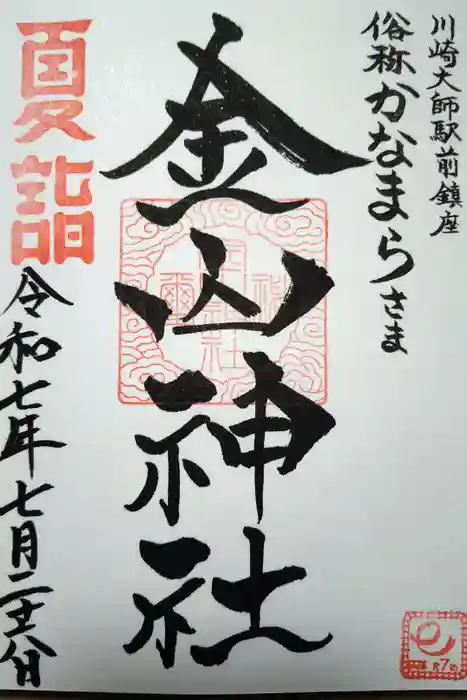 川崎大師駅前鎮座
俗称かなまらさま
金山神社
夏詣
令和七年七月二十六日